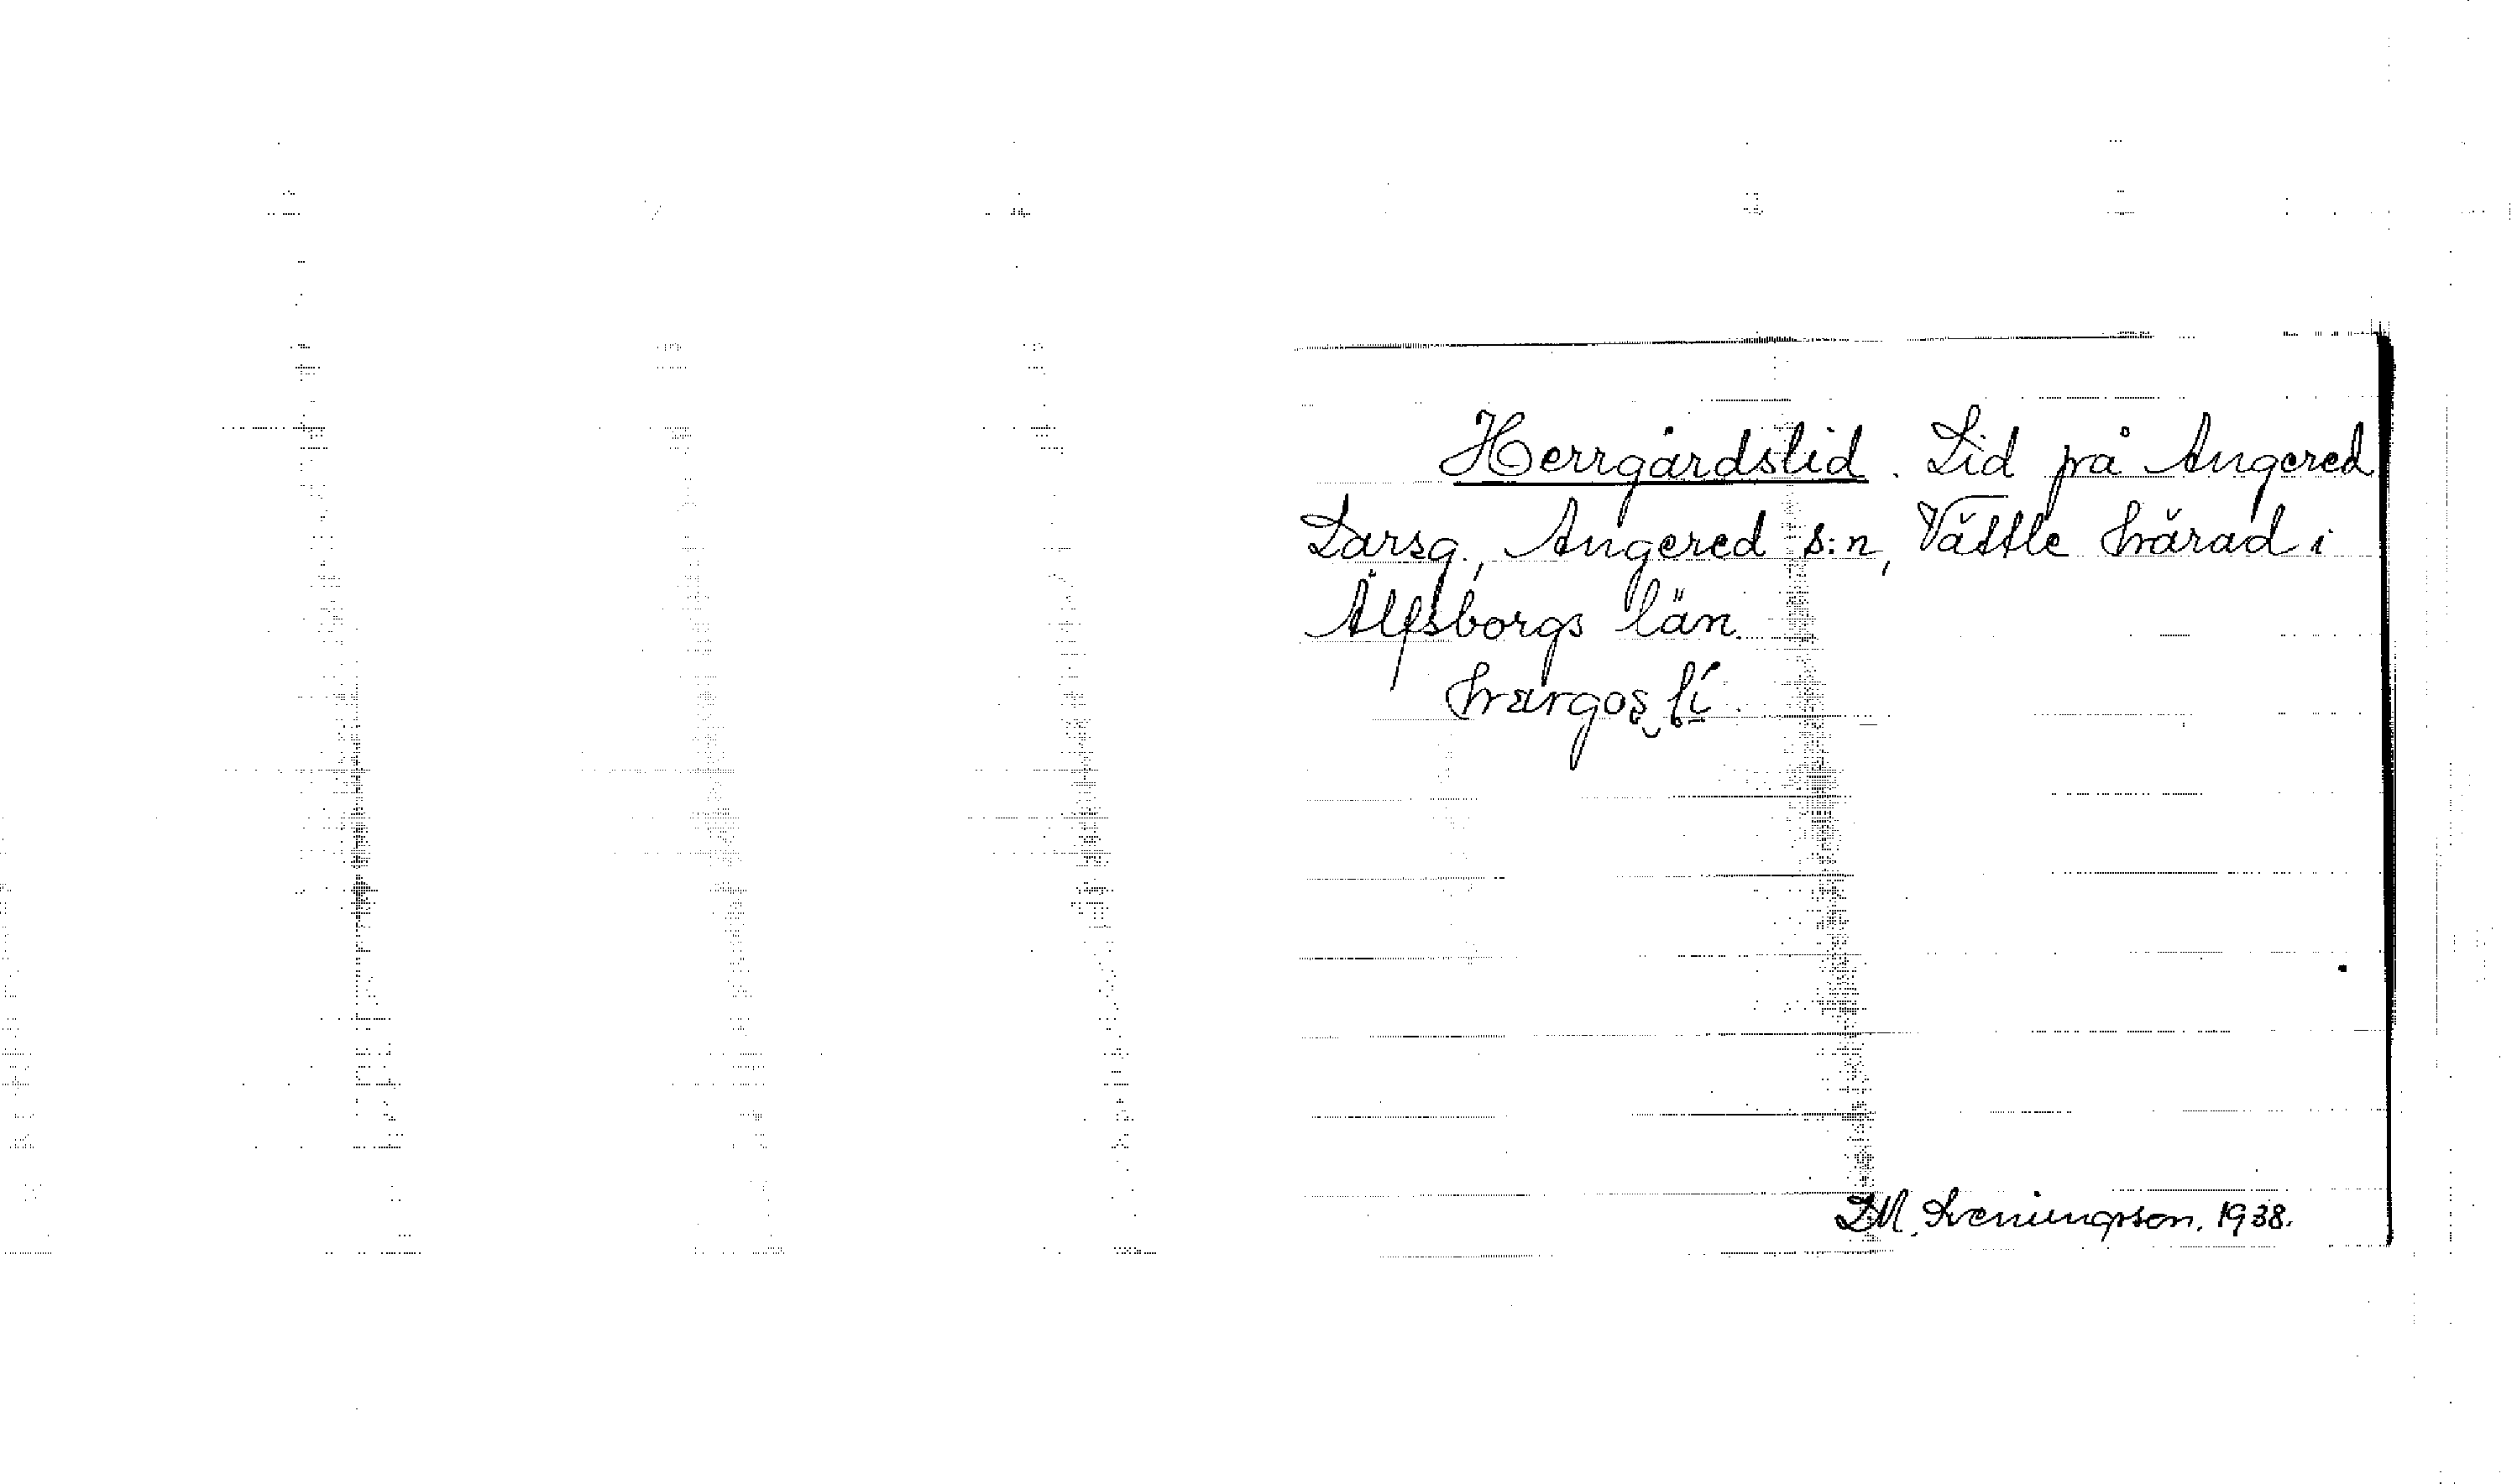 Herrgårdslid. Lid på Angered
Larsg., Angered s:n, Vättle härad i
Älfsborgs län.
D.M. Sveningsson. 1938.